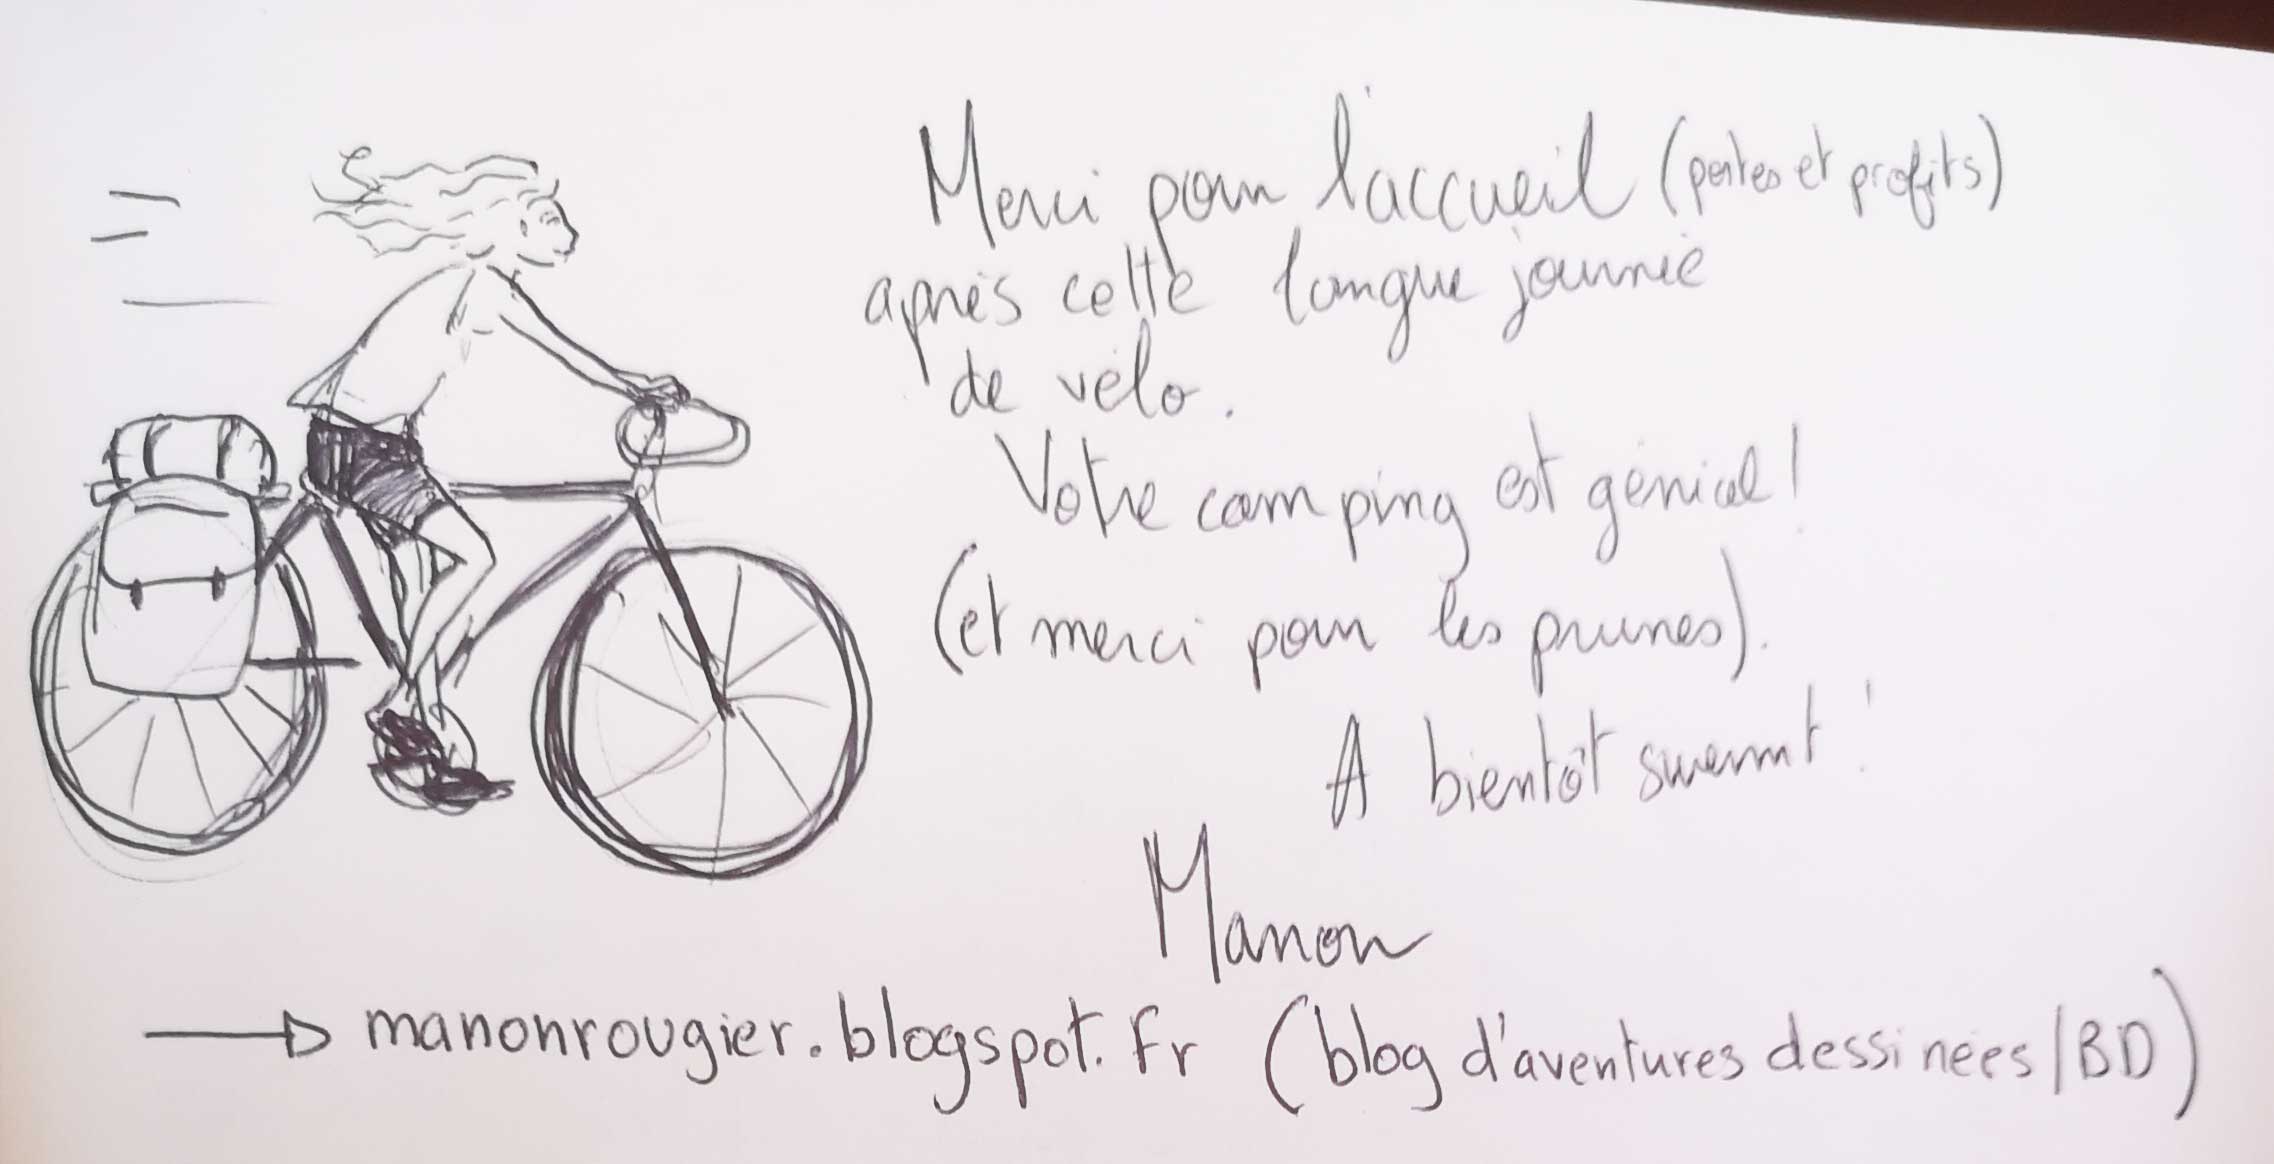 Merci pour l'accueil (pertes et profits)
après cette longue journée
de vélo.
Votre camping est génial!
(et merci pour les prunes).
A bientôt !
Manon
manonrougier.blogspot.fr (blog d'aventures dessinées/BD)